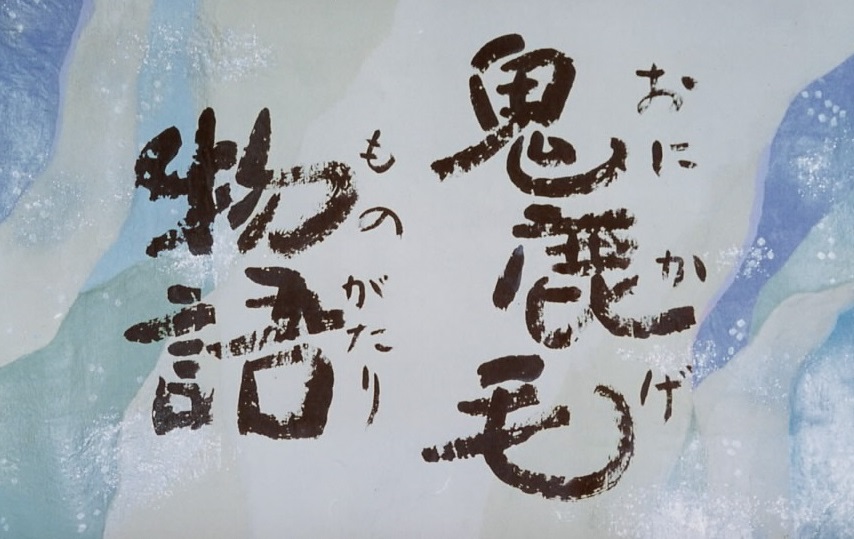 鬼鹿毛
おにかげ
物語
ものがたり